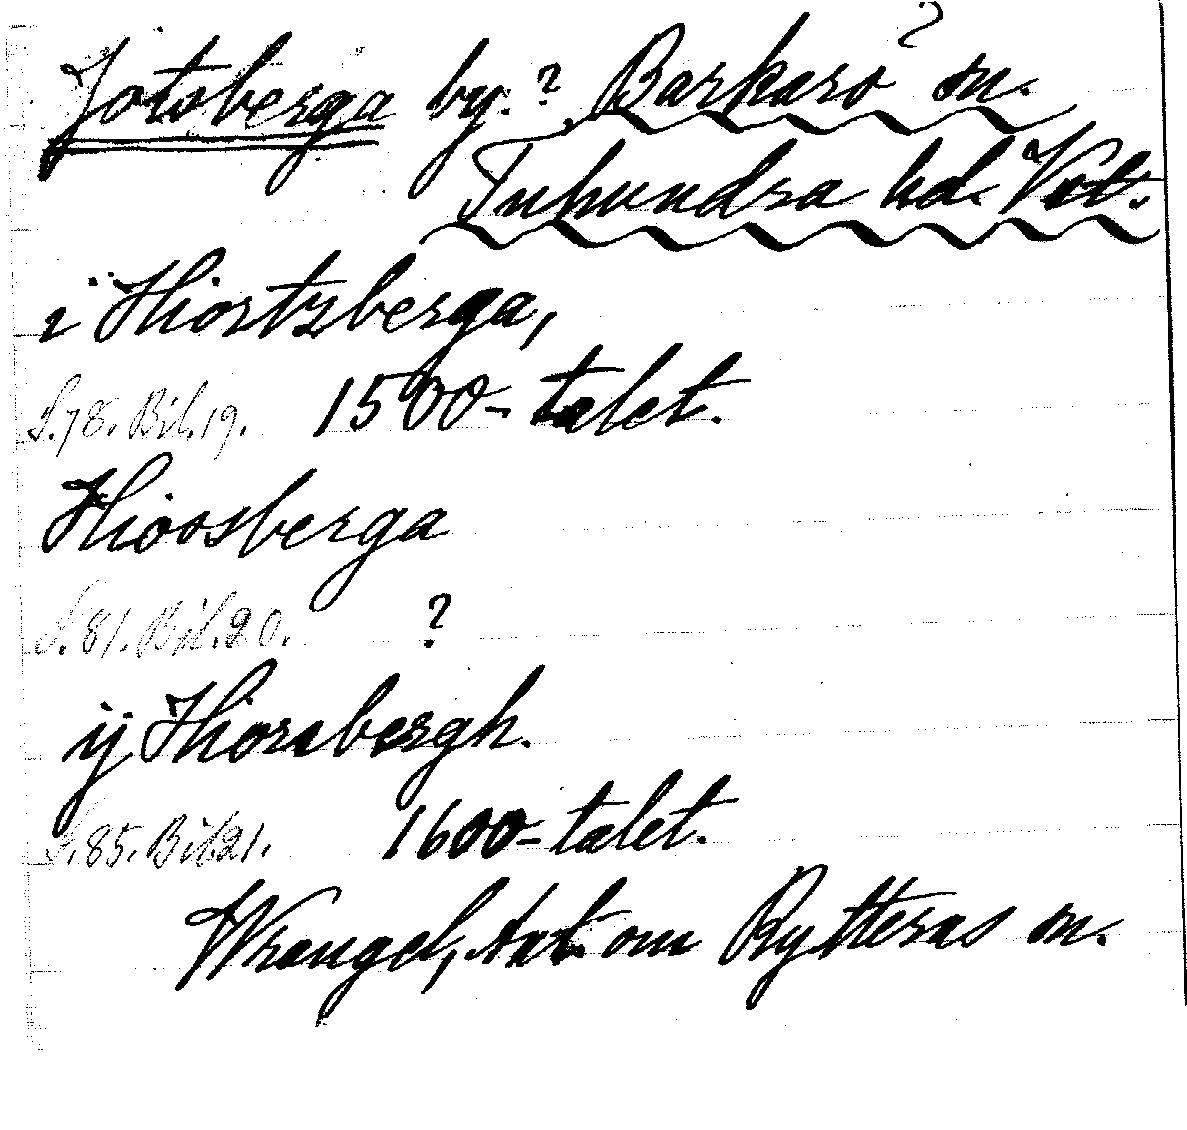 ?
Jotsberga by.? Barkarö sn.
Tuhundra hd. Vstl.
i Hiortzberga,
S.78. Bil.19. 1500-talet.
Hiossberga
S.81. Bil.20. ?
ij Hiorsbergh.
S.85. Bil.21. 1600-talet.
Wrangel, Ant. om Rytterns sn.